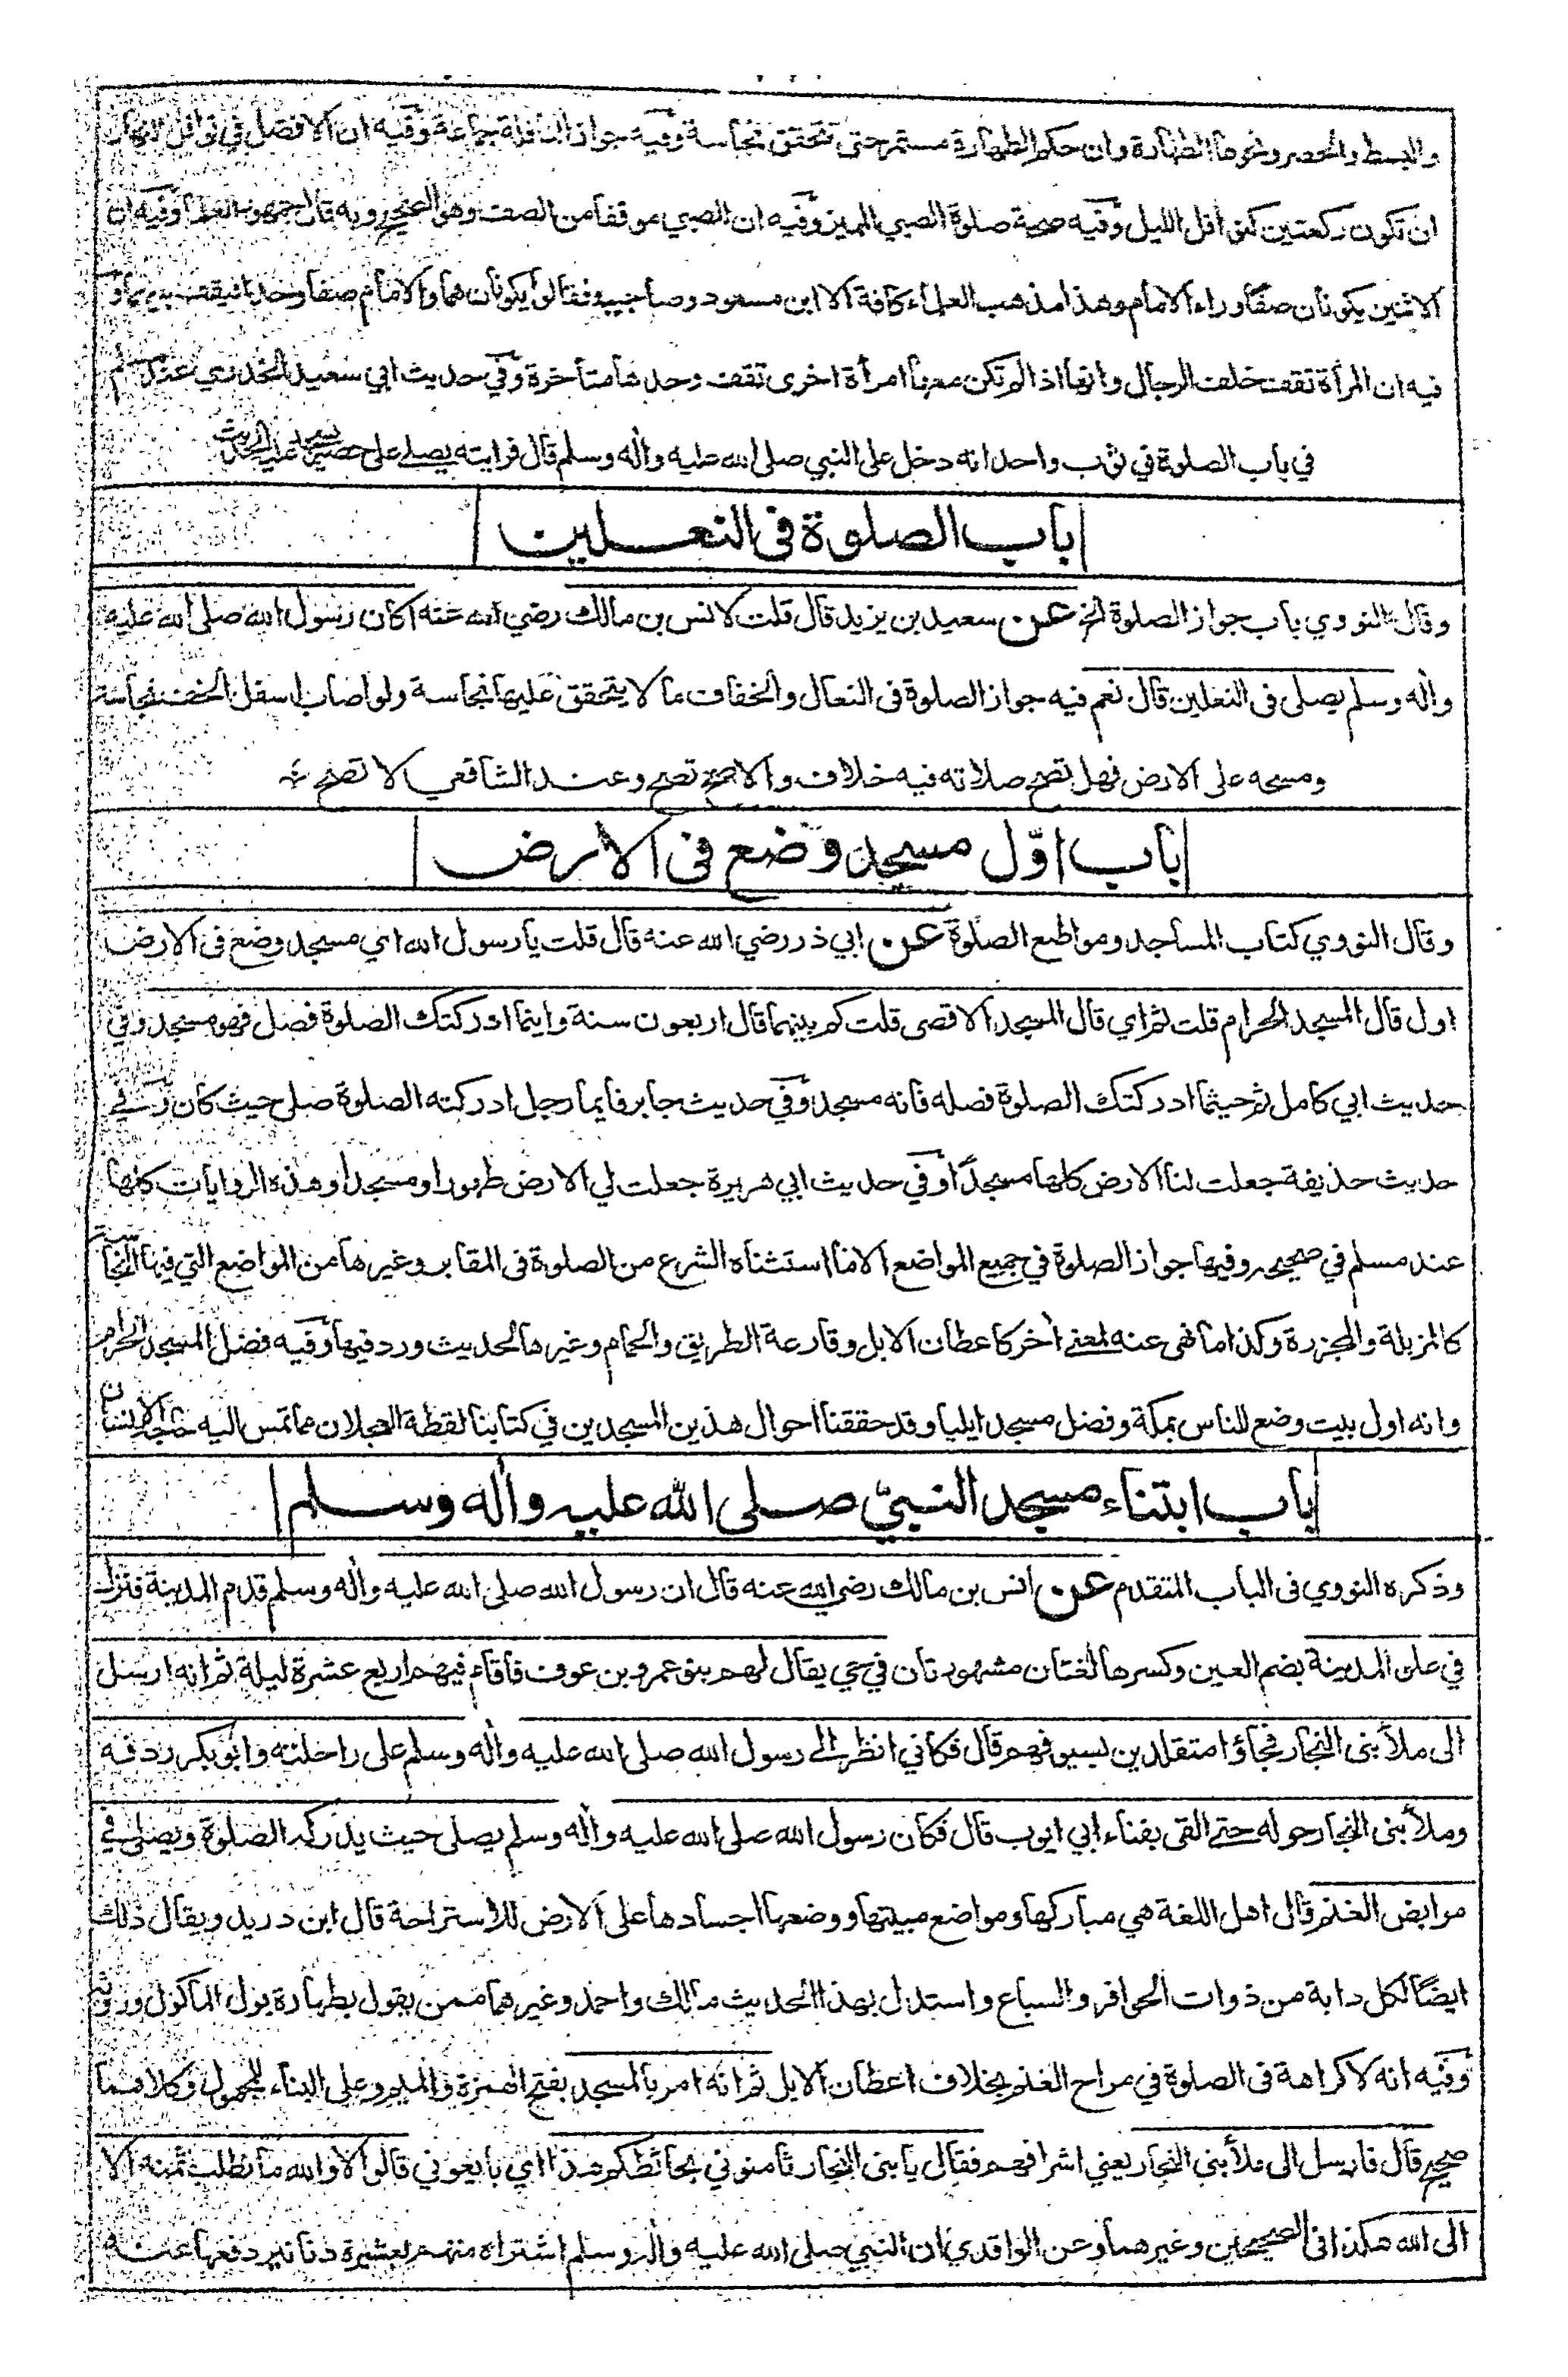 والبسط والحصر ونحوها الطهارة وان حكم الطهارة مستمر حتى تتحقق نجاسة وفيه جواز النافلة جماعة وفيه ان الافضل في نوافل النهار
ان تكون ركعتين كنوافل الليل وفيه صحة صلوة الصبي المميز وفيه ان للصبي موقفا من الصف وهو الصحيح وبه قال جمهور العلماء وفيه ان
الاثنين يكونان صفا وراء الامام وهذا مذهب العلماء كافة الا ابن مسعود وصاحبيه فقالوا يكونان هما والامام صفا واحدا فيقف بينهما و
فيه ان المرأة تقف خلف الرجال وانها اذا لم تكن معها امرأة اخرى تقف وحدها متأخرة وفي حديث ابي سعيد الخدري عند مسلم
في باب الصلوة في ثوب واحد انه دخل على النبي صلى الله عليه واٰله وسلم قال فرايته يصلے على حصير يسجد عليه الحديث
باب الصلوة فى النعلين
وقال النووي باب جواز الصلوة الخ عن سعيد بن يزيد قال قلت لانس بن مالك رضي الله عنه اكان رسول الله صلى الله عليه
واٰله وسلم يصلى فى النعلين قال نعم فيه جواز الصلوة فى النعال والخفاف ما لا يتحقق عليها نجاسة ولو اصاب اسفل الخف نجاسة
ومسحه على الارض فهل تصح صلاته فيه خلاف والاصح تصح وعند الشافعي لا تصح
باب اوّل مسجد وضع فى الارض
وقال النووي كتاب المساجد ومواضع الصلوة عن ابي ذر رضي الله عنه قال قلت يا رسول الله اي مسجد وضع فى الارض
اول قال المسجد الحرام قلت ثم اي قال المسجد الاقصى قلت كم بينهما قال اربعون سنة واينما ادركتك الصلوة فصل فهو مسجد وفي
حديث ابي كامل ثم حيثما ادركتك الصلوة فصله فانه مسجد وفي حديث جابر فايما رجل ادركته الصلوة صلى حيث كان وفي
حديث حذيفة جعلت لنا الارض كلها مسجدًا وفي حديث ابي هريرة جعلت لي الارض طهورا ومسجدا وهذه الروايات كلها
عند مسلم في صحيحه وفيها جواز الصلوة في جميع المواضع الا ما استثناه الشرع من الصلوة فى المقابر وغيرها من المواضع التي فيها النجاسة
كالمزبلة والمجزرة وكذا ما نهى عنه لمعنے اٰخر كاعطان الابل وقارعة الطريق والحمام وغيرها لحديث ورد فيها وفيه فضل المسجد الحرام
وانه اول بيت وضع للناس بمكة وفضل مسجد ايليا وقد حققنا احوال هذين المسجدين في كتابنا لقطة العجلان مما تمس اليه حاجة الانسان
باب ابتناء مسجد النبيّ صلى الله عليه واٰله وسلم
وذكره النووي فى الباب المتقدم عن انس بن مالك رضي الله عنه قال ان رسول الله صلى الله عليه واٰله وسلم قدم المدينة فنزل
في علو المدينة بضم العين وكسرها لغتان مشهورتان في حي يقال لهم بنو عمرو بن عوف فاقام فيهم اربع عشرة ليلة ثم انه ارسل
الى ملأ بنى النجار فجاؤا متقلدين بسيوفهم قال فكاني انظر الے رسول الله صلى الله عليه واٰله وسلم على راحلته وابو بكر ردفه
وملأ بنى النجار حوله حتے القى بفناء ابي ايوب قال فكان رسول الله صلى الله عليه واٰله وسلم يصلى حيث يدركه الصلوة ويصلى في
مرابض الغنم قال اهل اللغة هي مباركها ومواضع مبيتها ووضعها اجسادها على الارض للاستراحة قال ابن دريد ويقال ذلك
ايضًا لكل دابة من ذوات الحوافر والسباع واستدل بهذا الحديث مالك واحمد وغيرهما ممن يقول بطهارة بول المأكول وروثه
وفيه انه لا كراهة فى الصلوة في مراح الغنم بخلاف اعطان الابل ثم انه امر بالمسجد بفتح الهمزة والميم وعلى البناء للمجهول وكلاهما
صحيح قال فارسل الى ملأ بني النجار يعني اشرافهم فقال يا بنى النجار ثامنوني بحائطكم هذا اي بايعوني قالوا لا والله ما نطلب ثمنه الا
الى الله هكذا فى الصحيحين وغيرهما وعن الواقدي ان النبي صلى الله عليه واٰله وسلم اشتراه منهم بعشرة دنانير دفعها عنه